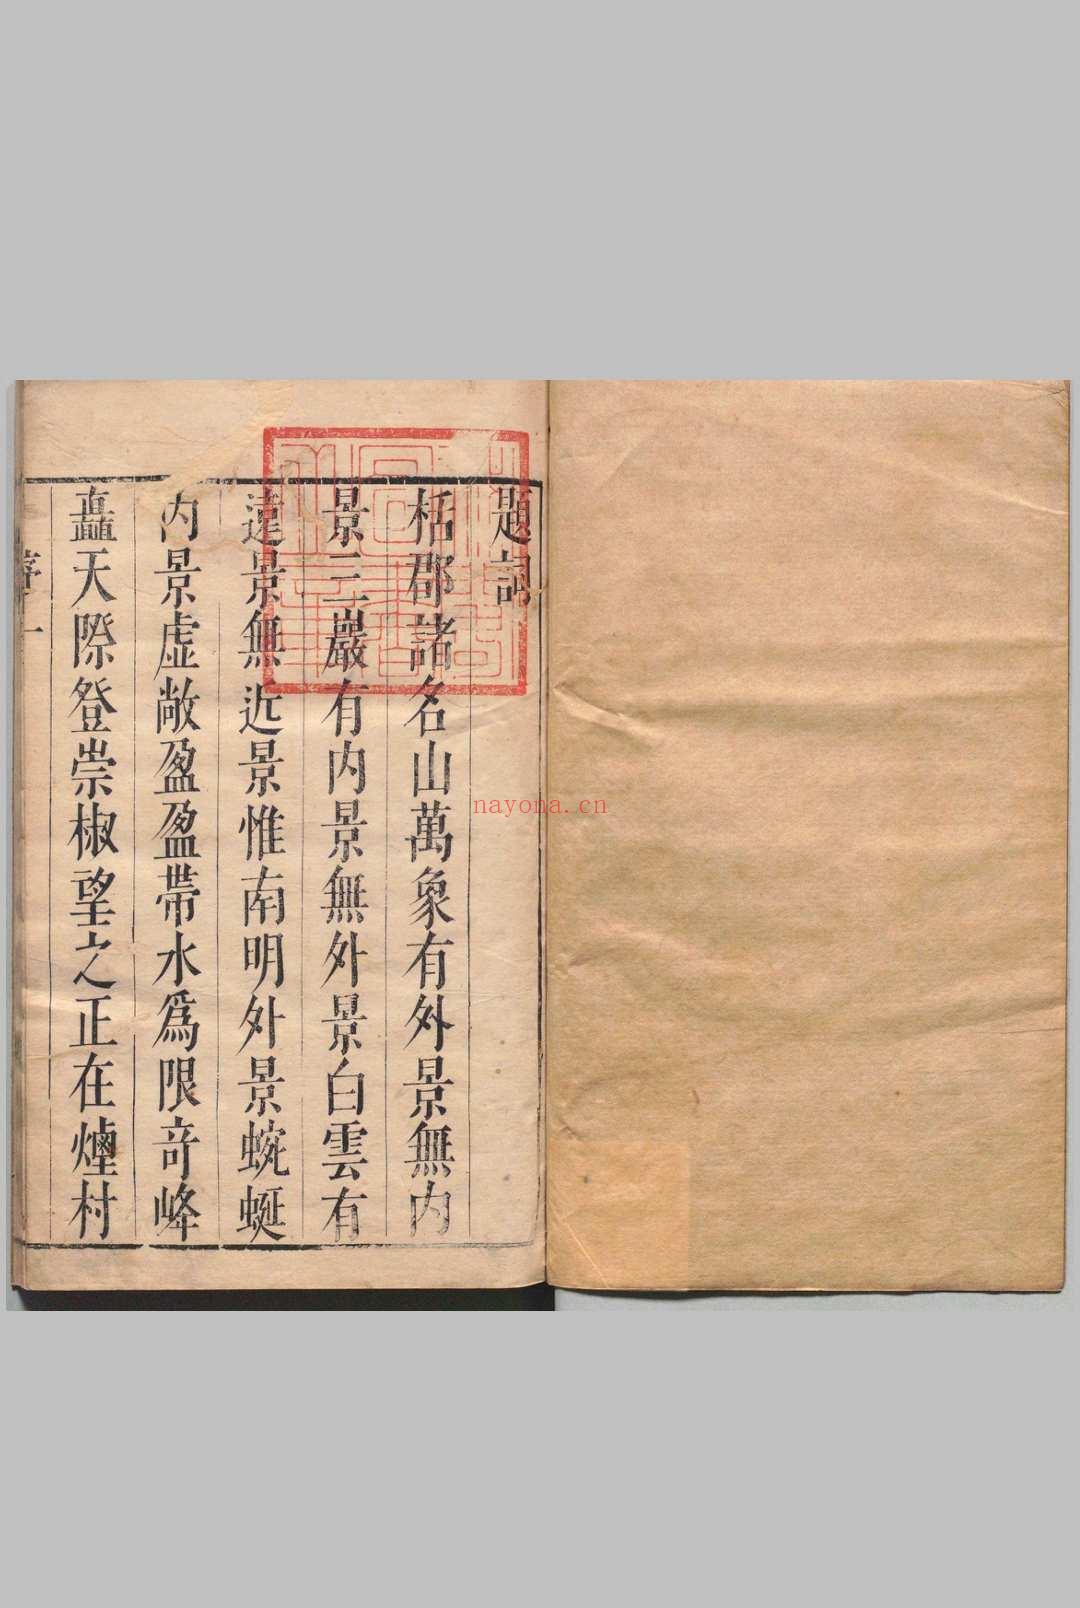 題詞
栝郡諸名山萬象有外景無内
景三巖有内景無外景白雲有
遠景無近景惟南明外景蜿蜒
内景虚敞盈盈帶水爲限奇峰
矗天際登崇椒望之正在煙村
序 一
nayona.cn